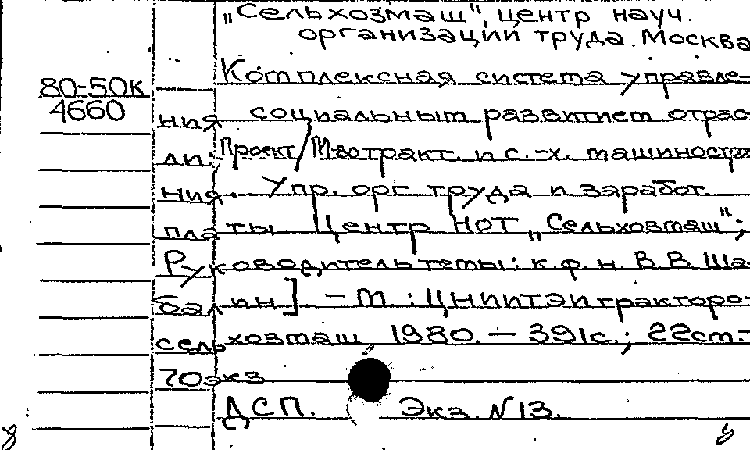 „Сельхозмаш", центр науч.
организации труда. Москва
Комплексная система управле-
80-50к
4660
ния социальным развитием отрас
ли. [Проект/М-во тракт. и с.-х. машиностр
ния. Упр. орг труда и заработ.
платы Центр НОТ „Сельхозмаш";
Руководитель темы: к.ф.н. В.В. Ша-
балин]. - М.: ЦНИИТЭИтракторо-
сельхозмаш 1980. - 391с.; 22см.-
70экз
ДСП. Экз. N13.